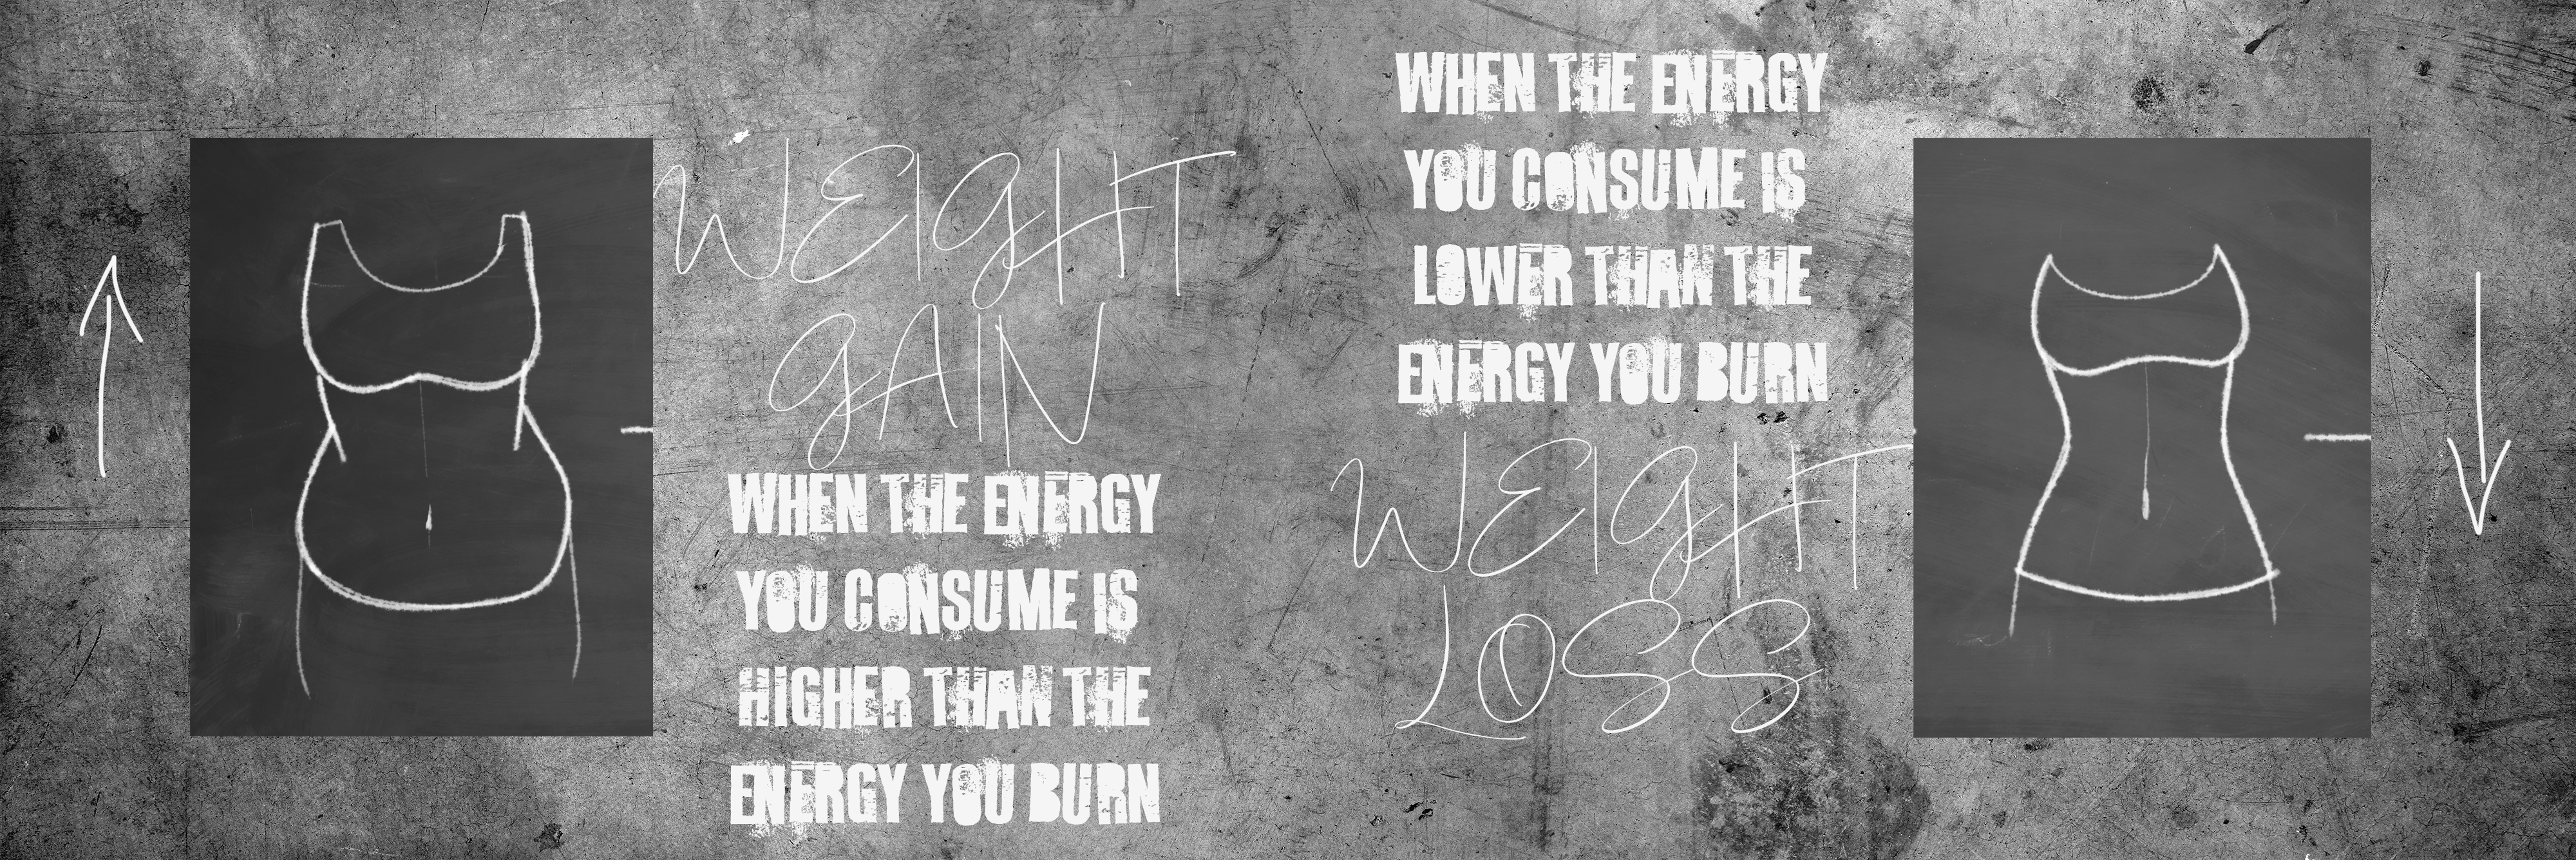 WEIGHT
GAIN
WHEN THE ENERGY
YOU CONSUME IS
HIGHER THAN THE
ENERGY YOU BURN
WHEN THE ENERGY
YOU CONSUME IS
LOWER THAN THE
ENERGY YOU BURN
WEIGHT
LOSS